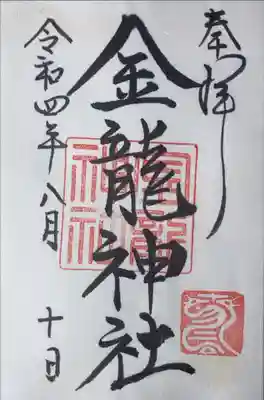 奉拝
金龍神社
令和四年八月十日